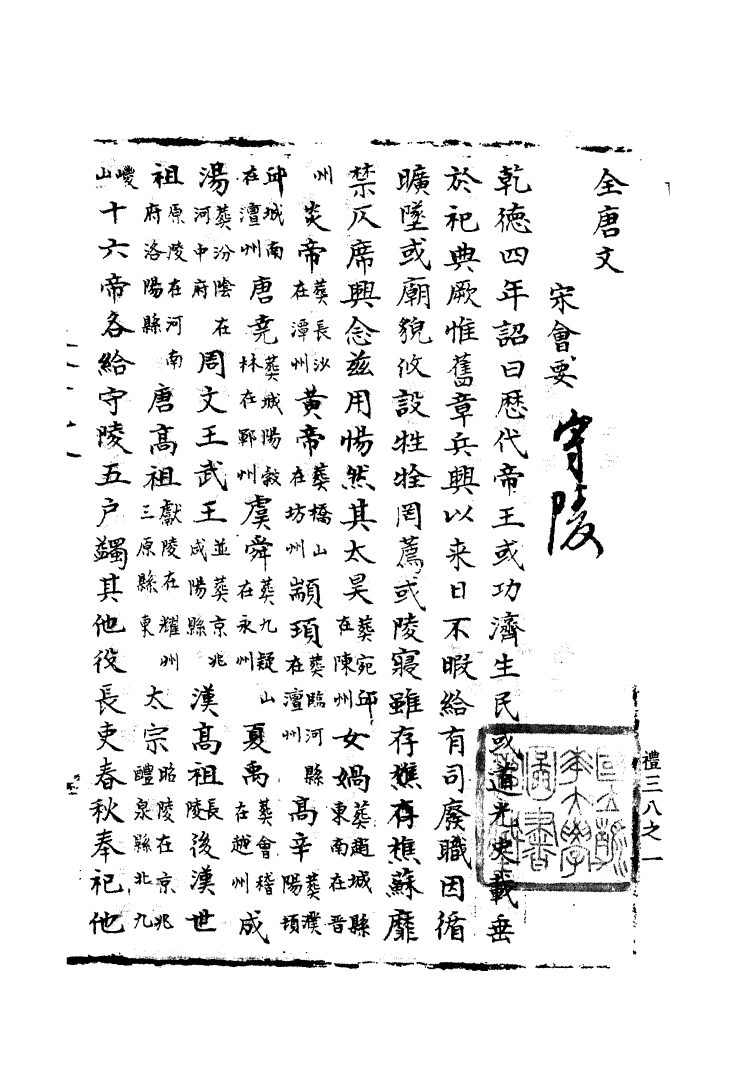 全唐文
宋會要
守陵
乾德四年詔曰歷代帝王或功濟生民或道光史載垂
於祀典厥惟舊章兵興以来日不暇給有司廢職因循
曠墜或廟貌攸設牲牷罔薦或陵寢雖存樵存樵蘇靡
禁仄席興念兹用惕然其太昊葬宛邱在陳州女媧葬趙城縣東南在晉
州炎帝葬長沙在潭州黄帝葬橋山在坊州顓頊葬臨河縣在澶州高辛葬濮陽頓
邱城南在澶州唐堯葬城陽穀林在鄆州虞舜葬九疑山在永州夏禹葬會稽在越州成
湯葬汾陰在河中府周文王武王並葬京兆咸陽縣漢高祖長陵後漢世
祖原陵在河南府洛陽縣唐高祖獻陵在耀州三原縣東太宗昭陵在京兆醴泉縣北九
嵕山十六帝各給守陵五户蠲其他役長吏春秋奉祀他
禮三八之一